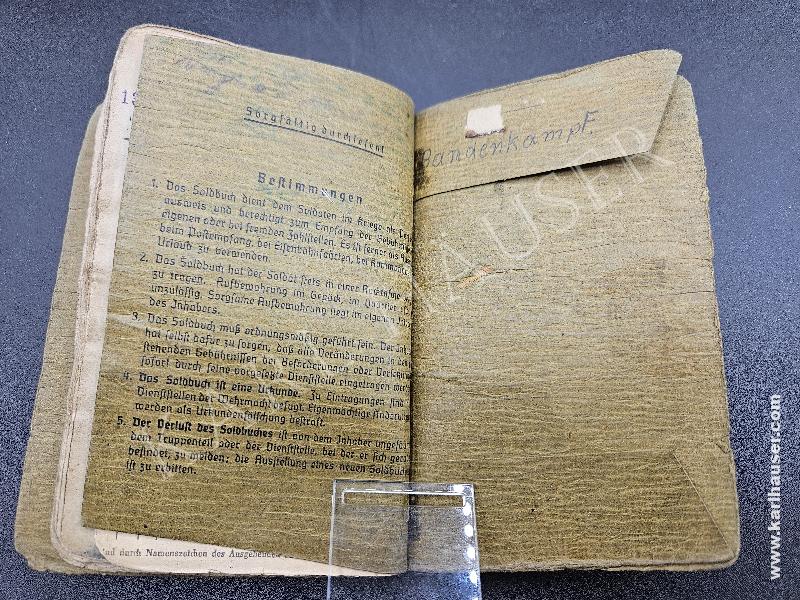 Sorgfältig durchlesen!
Bestimmungen
1. Das Soldbuch dient dem Soldaten im Kriege als
ausweis und berechtigt zum Empfang der
eigenen oder bei fremden Zahlstellen. Es ist ferner als
beim Postempfang, bei Eisenbahnfahrten, bei
Urlaub zu verwenden.
2. Das Soldbuch hat der Soldat stets in einer Rocktasche
zu tragen. Aufbewahrung im Gepäck, im Quartier
unzulässig. Sorgsame Aufbewahrung liegt im eigenen
des Inhabers.
3. Das Soldbuch muß ordnungsmäßig geführt sein. Der
hat selbst dafür zu sorgen, daß alle Veränderungen in
stehenden Gebührnissen bei Beförderungen oder
sofort durch seine vorgesetzte Dienststelle eingetragen
4. Das Soldbuch ist eine Urkunde. Zu Eintragungen sind
Dienststellen der Wehrmacht befugt. Eigenmächtige
werden als Urkundenfälschung bestraft.
5. Der Verlust des Soldbuches ist von dem Inhaber
dem Truppenteil oder der Dienststelle, bei der er sich
befindet, zu melden; die Ausstellung eines neuen
ist zu erbitten.
durch Namenszeichen des Ausgehenden
Bandenkampf.
KARL HAUSER
www.karlhauser.com